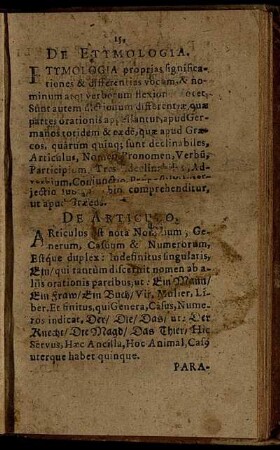 15.
DE ETYMOLOGIA.
ETYMOLOGIA proprias significa-
tiones & differentias vocum, & no
minum atq; verborum flexion docet,
Sunt autem dictionum differentiæ, quæ
partes orationis appellantur, apud Ger-
manos totidem & eædē, quæ apud Græ-
cos, quarum quinq; sunt declinabiles,
Articulus, Nomen Pronomen, Verbū,
Participium, Tres Indeclinabiles, Ad-
verbium, Conjunctio
jectio sub adverbio comprehenditur,
ut apud Græcos.
DE ARTICULO.
ARticulus est nota Nominum, Ge-
nerum, Casuum & Numerorum,
Estque duplex: Indefinitus singularis,
Ein/ qui tantùm discernit nomen ab a-
liis orationis partibus, ut: Ein Mann/
Ein Fraw/ Ein Buch/ Vir, Mulier, Li-
ber. Et finitus, qui Genera, Casus, Nume-
ros indicat, Der/ Die/ Das/ ut: Der
Knecht/ Die Magd/ Das Thier/ Hic
Servus, Hæc Ancilla, Hoc Animal, Casꝰ
uterque habet quinque.
PARA-